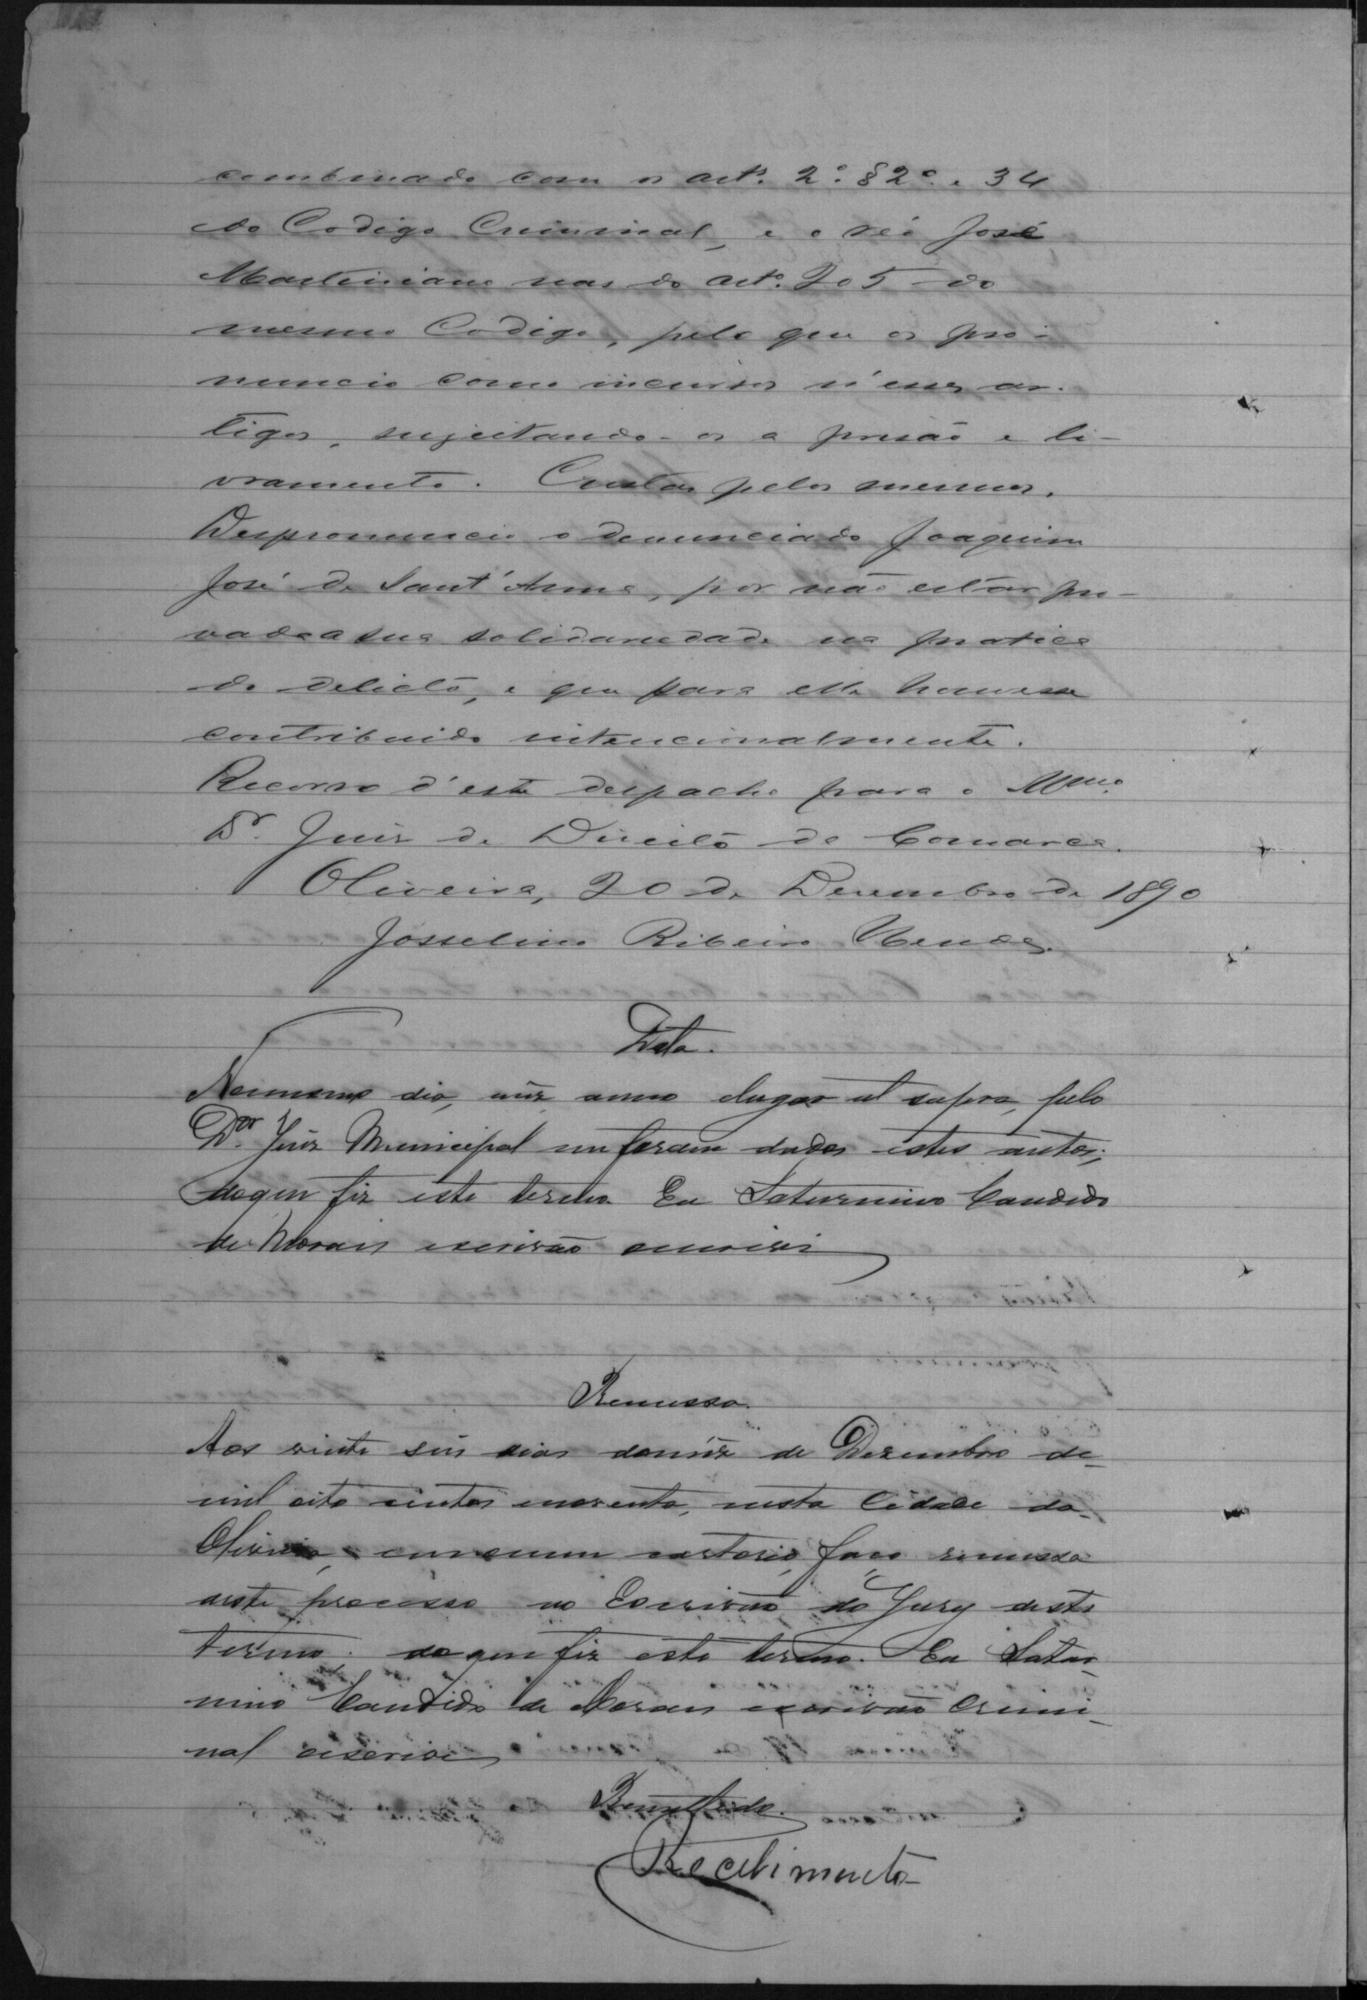 combinado com os arts. 2.º § 2.º e 34
do Codigo Criminal, e o réo José
Martiniano nas do art.º 205 do
mesmo Codigo, pelo que os pro-
nuncio como incursos n'esses ar-
tigos, sujeitando-os a prisão e li-
vramento. Custas pelos mesmos.
Despronuncio o denunciado Joaquim
José de Sant'Anna, por não estar pro-
vada a sua solidariedade na pratica
do delicto, e que para elle houvesse
contribuido intencionalmente.
Recorro d'este despacho para o Mmo.
Dr. Juiz de Direito da Comarca.
Oliveira, 20 de Dezembro de 1890
Josselino Ribeiro Mendes.
Data.
No mesmo dia, mez anno e lugar ut supra, pelo
Dor. Juiz Municipal me foram dados estes autos;
do que fiz este termo. Eu Saturnino Candido
de Moraes escrivão escrivi
Remessa.
Aos vinte seis dias do mez de Dezembro de
mil oito centos noventa, nesta Cidade da
Oliveira, em meu cartorio, faço remessa
deste processo ao Escrivão do Jury deste
termo; do que fiz este termo. Eu Satur-
nino Candido de Moraes escrivão Crimi-
nal escrivi
Remettido.
Recebimento